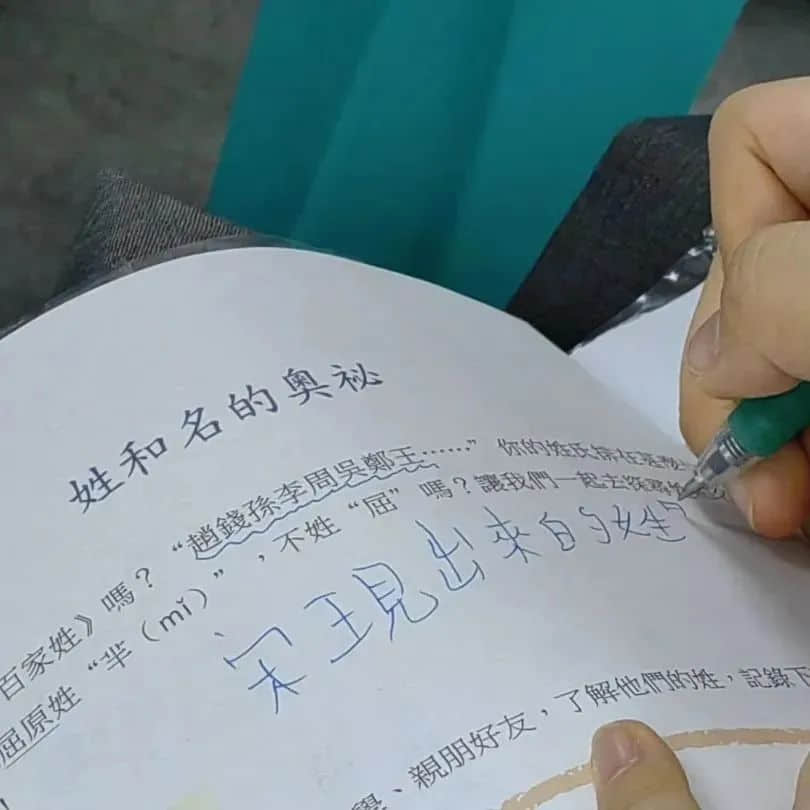 姓和名的奧祕
百家姓》嗎？“趙錢孫李周吳鄭王……”你的姓氏排在
屈原姓“芈（mǐ）”，不姓“屈”嗎？讓我們一起去探尋
宋王現出來的姓
、親朋好友，了解他們的姓，記錄下